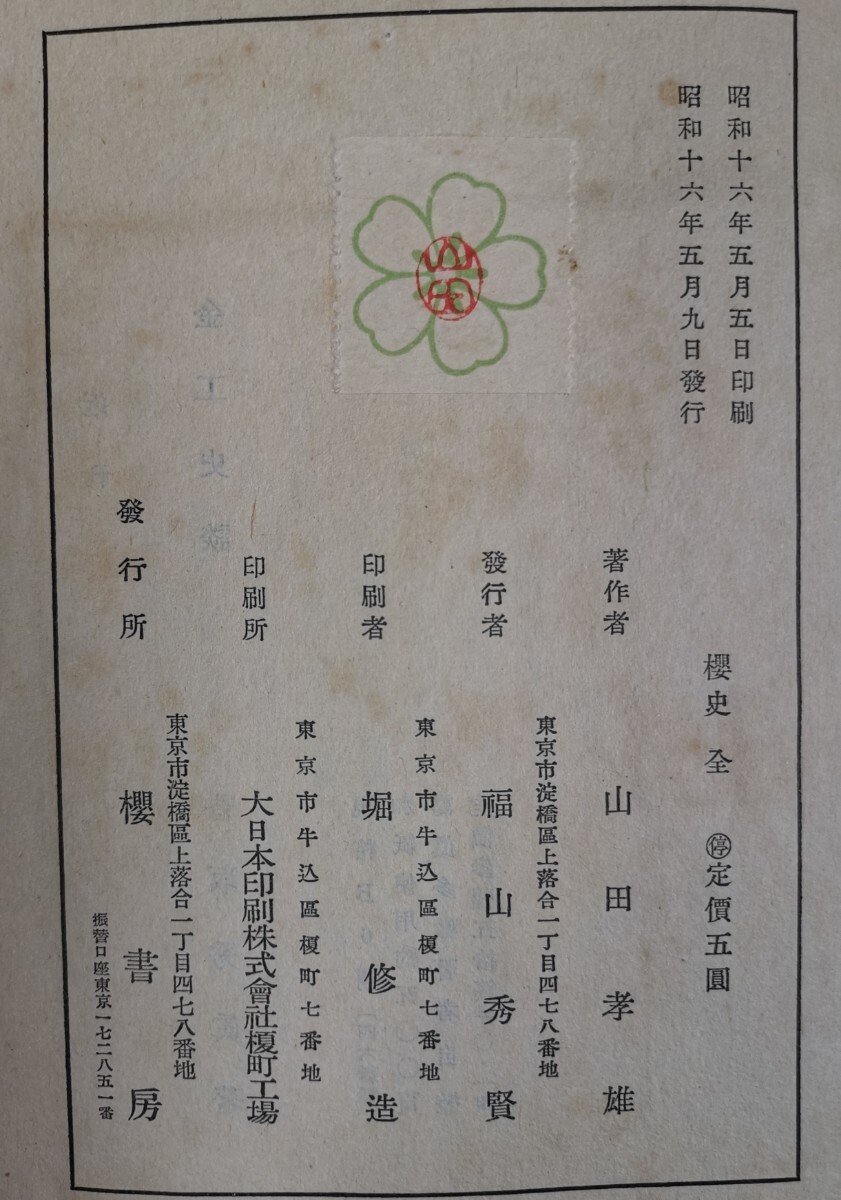 昭和十六年五月五日印刷
昭和十六年五月九日發行
櫻史 全 ㊝定價五圓
著作者 山田孝雄
東京市淀橋區上落合一丁目四七八番地
發行者 福山秀賢
東京市牛込區榎町七番地
印刷者 堀修造
東京市牛込區榎町七番地
印刷所 大日本印刷株式會社榎町工場
東京市淀橋區上落合一丁目四七八番地
發行所 櫻書房
振替口座東京一七二八五一番
山田
金工史談